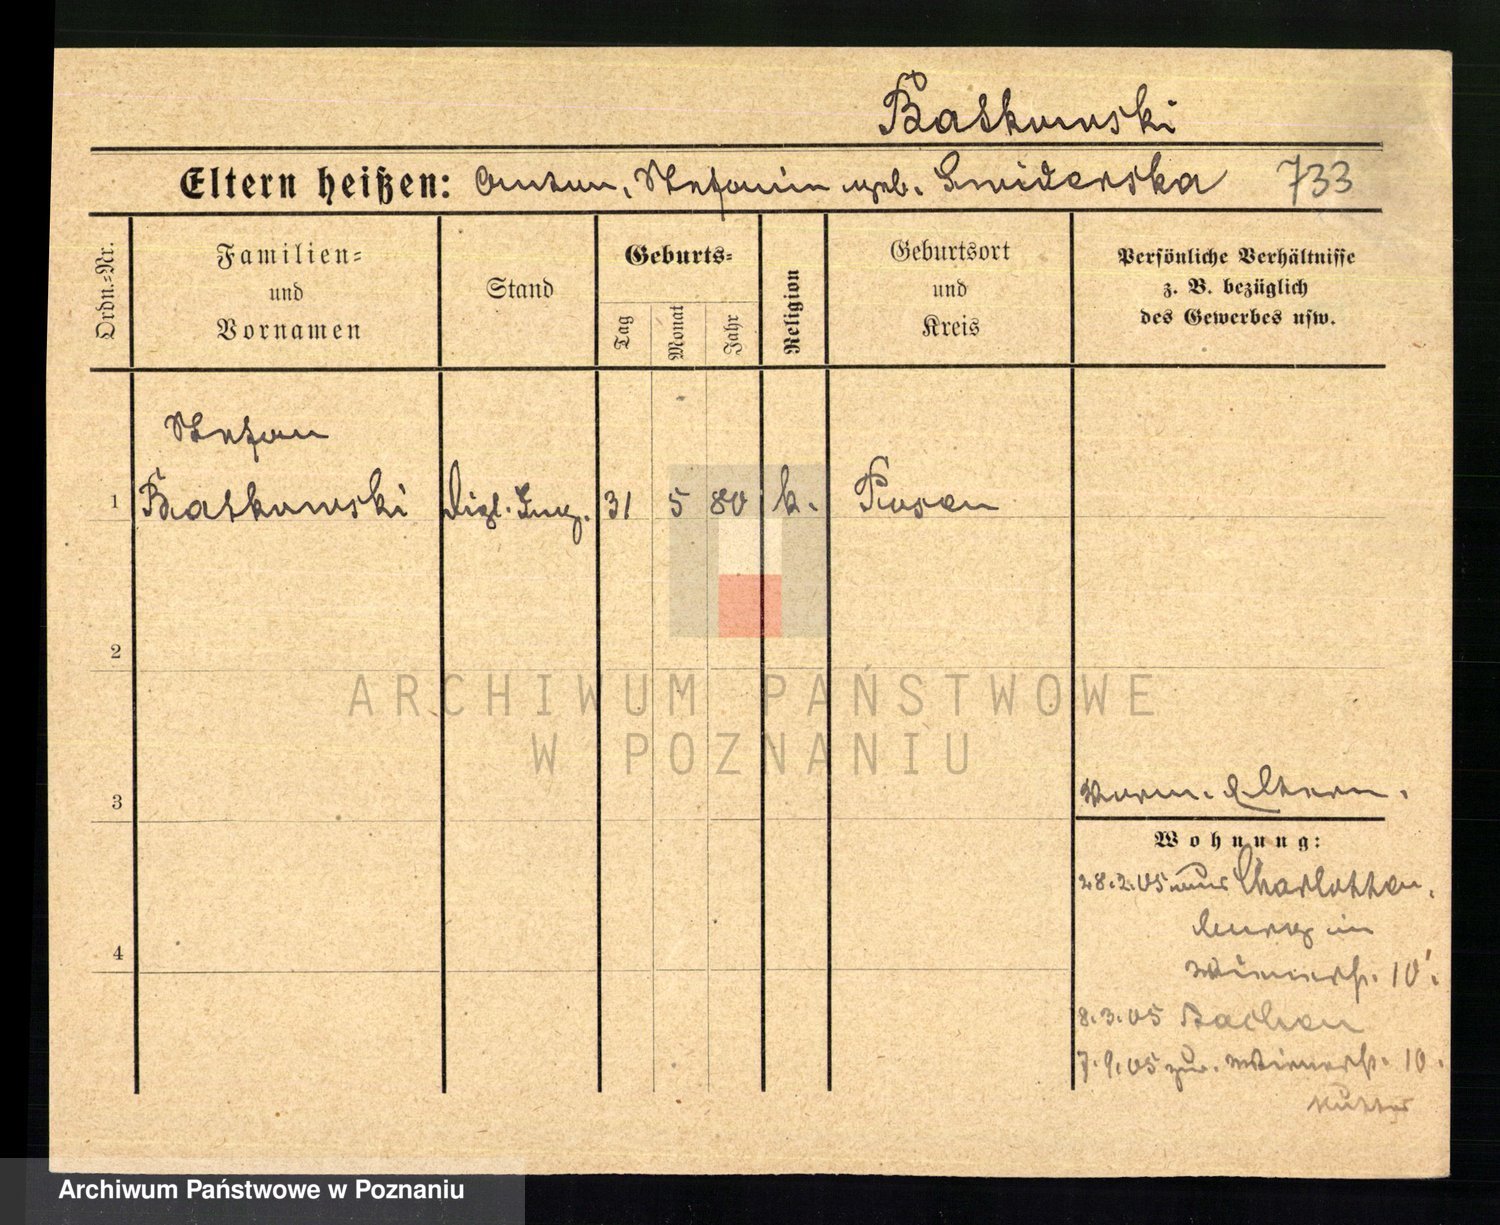 Batkowski
Eltern heißen: Anton, Stefanie geb. Smiderska 733
Ordn.-Nr.
Familien-
und
Vornamen
Stand
Geburts-
Tag
Monat
Jahr
Religion
Geburtsort
und
Kreis
Persönliche Verhältnisse
z. B. bezüglich
des Gewerbes usw.
Stefan
1 Batkowski Dipl. Ing. 31 5 80 k. Posen
2
3
4
Eltern.
Wohnung:
28.2.05 aus Charlotten-
burg in
10.
8.3.05 Aachen
7.9.05 zur. 10.
Mutter
ARCHIWUM PAŃSTWOWE
W POZNANIU
Archiwum Państwowe w Poznaniu